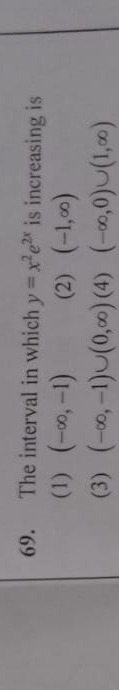 69. The interval in which y = x²e²ˣ is increasing is
(1) (−∞, −1) (2) (−1,∞)
(3) (−∞, −1)∪(0,∞) (4) (−∞,0)∪(1,∞)